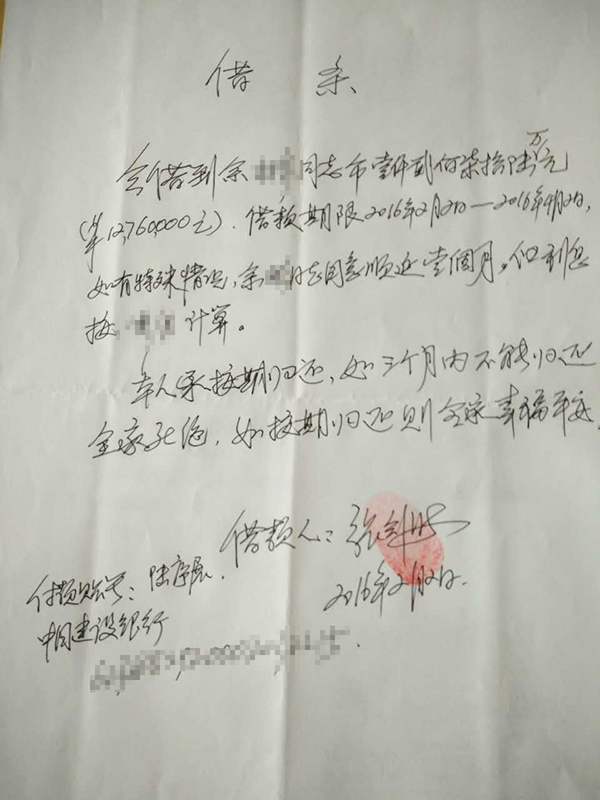 借条
今借到余 同志币壹仟 佰柒拾陆万元
(¥12,760,000元). 借款期限2016年2月2日—2016年4月2日,
如有特殊情况, 余 同意顺延壹個月, 但利息
按 计算。
本人承 按期归还, 如三个月内不能归还
全家死绝, 如按期归还则全家幸福平安.
借款人: 张
2016年2月2日.
付款账号: 陆
中国建设银行